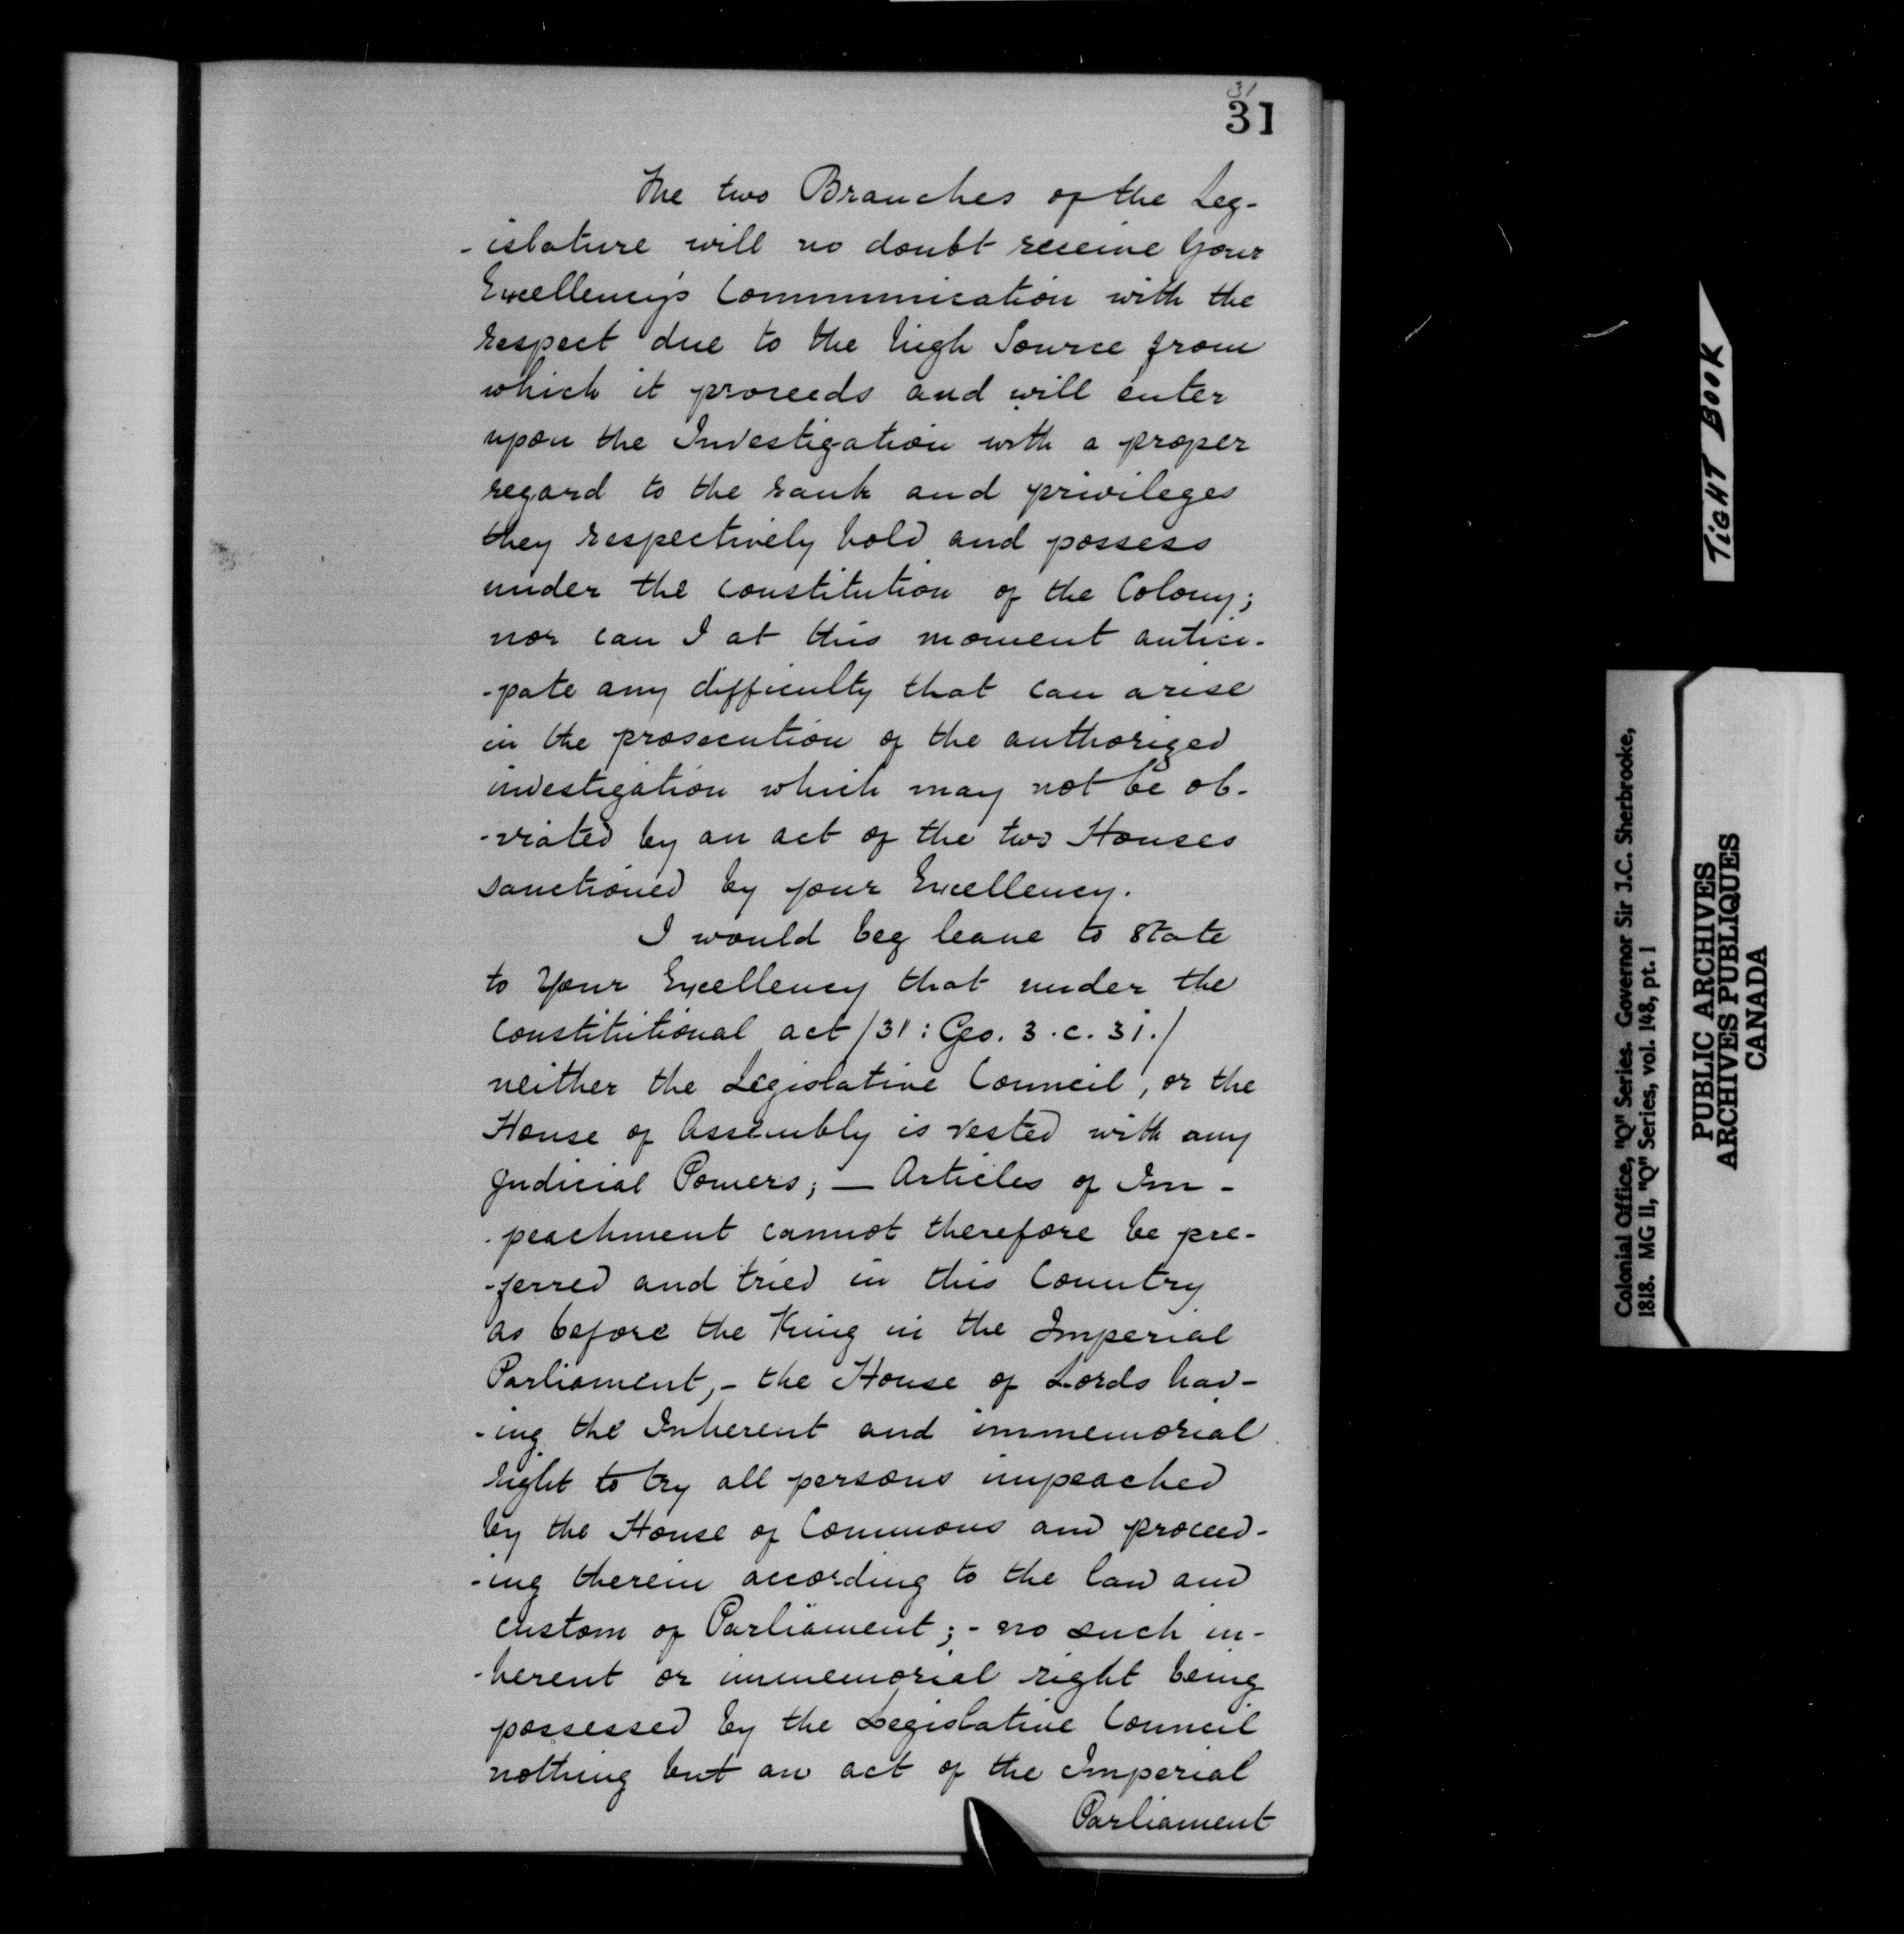 31
31
The two Branches of the Leg-
-islature will no doubt receive Your
Excellency's Communication with the
respect due to the high Source from
which it proceeds and will enter
upon the Investigation with a proper
regard to the rank and privileges
they respectively hold and possess
under the constitution of the Colony;
nor can I at this moment antici-
-pate any difficulty that can arise
in the prosecution of the authorized
investigation which may not be ob-
-viated by an act of the two Houses
sanctioned by your Excellency.
I would beg leave to state
to Your Excellency that under the
constitutional act /31: Geo. 3. c. 31./
neither the Legislative Council, or the
House of Assembly is vested with any
Judicial Powers; — Articles of Im-
-peachment cannot therefore be pre-
-ferred and tried in this Country
as before the King in the Imperial
Parliament,- the House of Lords hav-
-ing the Inherent and immemorial
right to try all persons impeached
by the House of Commons and proceed-
-ing therein according to the law and
custom of Parliament; - no such in-
-herent or immemorial right being
possessed by the Legislative Council
nothing but an act of the Imperial
Parliament
TIGHT BOOK
Colonial Office, "Q" Series. Governor Sir J.C. Sherbrooke,
1818. MG 11, "Q" Series, vol. 148, pt. 1
PUBLIC ARCHIVES
ARCHIVES PUBLIQUES
CANADA